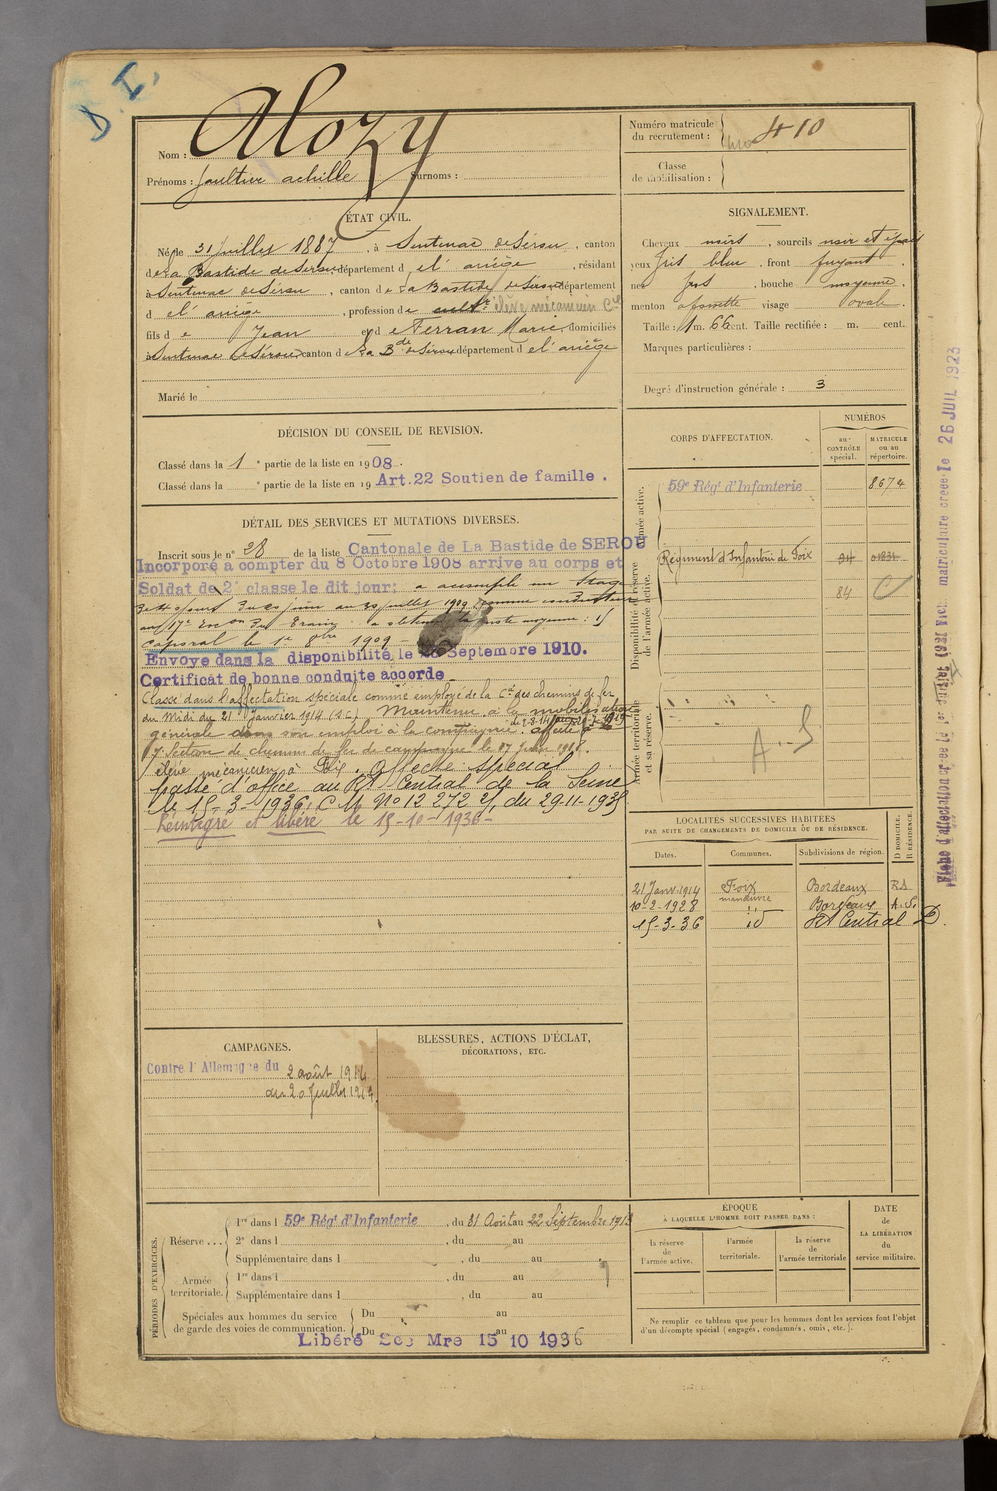 D. I.
Alozy
Nom :
Prénoms : Gaultier achille Surnoms :
Numéro matricule du recrutement : 410
Classe de mobilisation :
ÉTAT CIVIL.
Né le 31 Juillet 1887, à Sentenac de Sérou, canton
de La Bastide de Serou, département d el' ariège, résidant
à Sentenac de Sérou, canton de La Bastide de Sérou département
d el' ariège, profession de cult^r élève mécanicien C^ie
fils de Jean et de Ferran Marie, domiciliés
à Sentenac de Sérou canton de La B^de de Sérou département d el' ariège
Marié le
SIGNALEMENT.
Cheveux noirs, sourcils noir et épais
yeux gris bleu, front fuyant,
nez fort, bouche moyenne,
menton à fossette visage ovale.
Taille : 1 m. 66 cent. Taille rectifiée : m. cent.
Marques particulières :
Degré d'instruction générale : 3
DÉCISION DU CONSEIL DE REVISION.
Classé dans la 1^e partie de la liste en 1908.
Classé dans la ^e partie de la liste en 19 Art. 22 Soutien de famille.
DÉTAIL DES SERVICES ET MUTATIONS DIVERSES.
Inscrit sous le n° 28 de la liste Cantonale de La Bastide de SEROU
Incorporé à compter du 8 Octobre 1908 arrive au corps et
Soldat de 2^e classe le dit jour; a accompli un stage
au 17^e Esc^on du Train
caporal le 1^er 8bre 1909
Envoyé dans la disponibilité, le Septembre 1910.
Certificat de bonne conduite accordé
Classé dans l'affectation spéciale comme employé de la C^ie des chemins de fer
du Midi du 21 Janvier 1914 (S.C.) Maintenu à la mobilisation
générale dans son emploi à la compagnie. affecté à la
7 Section de chemins de fer de campagne le
élève mécanicien à Foix. affecté spécial
passé d'office au RA Central de la Seine
le 15-3-1936, C M No 12 272 2/1 du 29-11-1935
Réintégré et libéré le 15-10-1936-
CORPS D'AFFECTATION.
NUMÉROS
au CONTRÔLE spécial.
MATRICULE ou au répertoire.
Armée active.
59^e Rég^t d'Infanterie 8674
Disponibilité de réserve de l'armée active.
Régiment d'Infanterie de Foix 84
84 C
Armée territoriale et sa réserve.
A. S
LOCALITÉS SUCCESSIVES HABITÉES
PAR SUITE DE CHANGEMENTS DE DOMICILE OU DE RÉSIDENCE.
Dates. Communes. Subdivisions de région. D DOMICILE. R RÉSIDENCE.
21 Janv. 1914 Foix Bordeaux
manœuvre
10-2-1928 Bordeaux A. S.
15-3-36 id RA Central D.
CAMPAGNES.
Contre l'Allemagne du 2 août 1914
au 20 Juillet 1919.
BLESSURES, ACTIONS D'ÉCLAT,
DÉCORATIONS, ETC.
PÉRIODES D'EXERCICES.
Réserve...
1^re dans l 59^e Rég^t d'Infanterie, du 31 Août au 22 Septembre 1913
2^e dans l , du au
Supplémentaire dans l , du au
Armée territoriale.
1^re dans l , du au
Supplémentaire dans l , du au
Spéciales aux hommes du service de garde des voies de communication.
Du au
Du au
Libéré Sce Mre 15 10 1936
ÉPOQUE
À LAQUELLE L'HOMME DOIT PASSER DANS :
la réserve de l'armée active.
l'armée territoriale.
la réserve de l'armée territoriale
DATE de LA LIBÉRATION du service militaire.
Ne remplir ce tableau que pour les hommes dont les services font l'objet
d'un décompte spécial (engagés, condamnés, omis, etc.).
matriculaire créée le 26 JUIL 1923